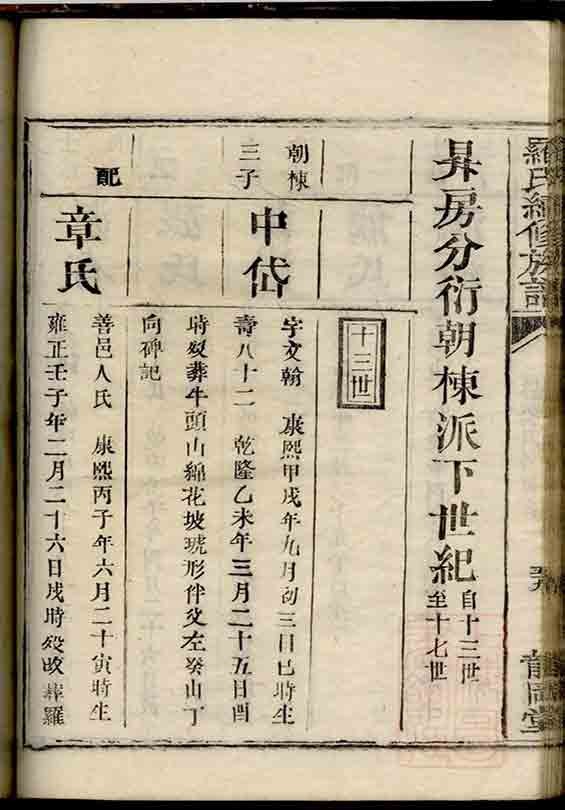 羅氏續修族譜
昇房分衍朝棟派下世紀
自十三世
至十七世
十三世
朝棟
三子
中岱
字文翰 康熙甲戌年九月初三日巳時生
壽八十二 乾隆乙未年三月二十五日酉
時歿葬牛頭山綿花坡琥形伴父左癸山丁
向碑記
配
章氏
善邑人氏 康熙丙子年六月二十寅時生
雍正壬子年二月二十六日戌時歿改葬羅